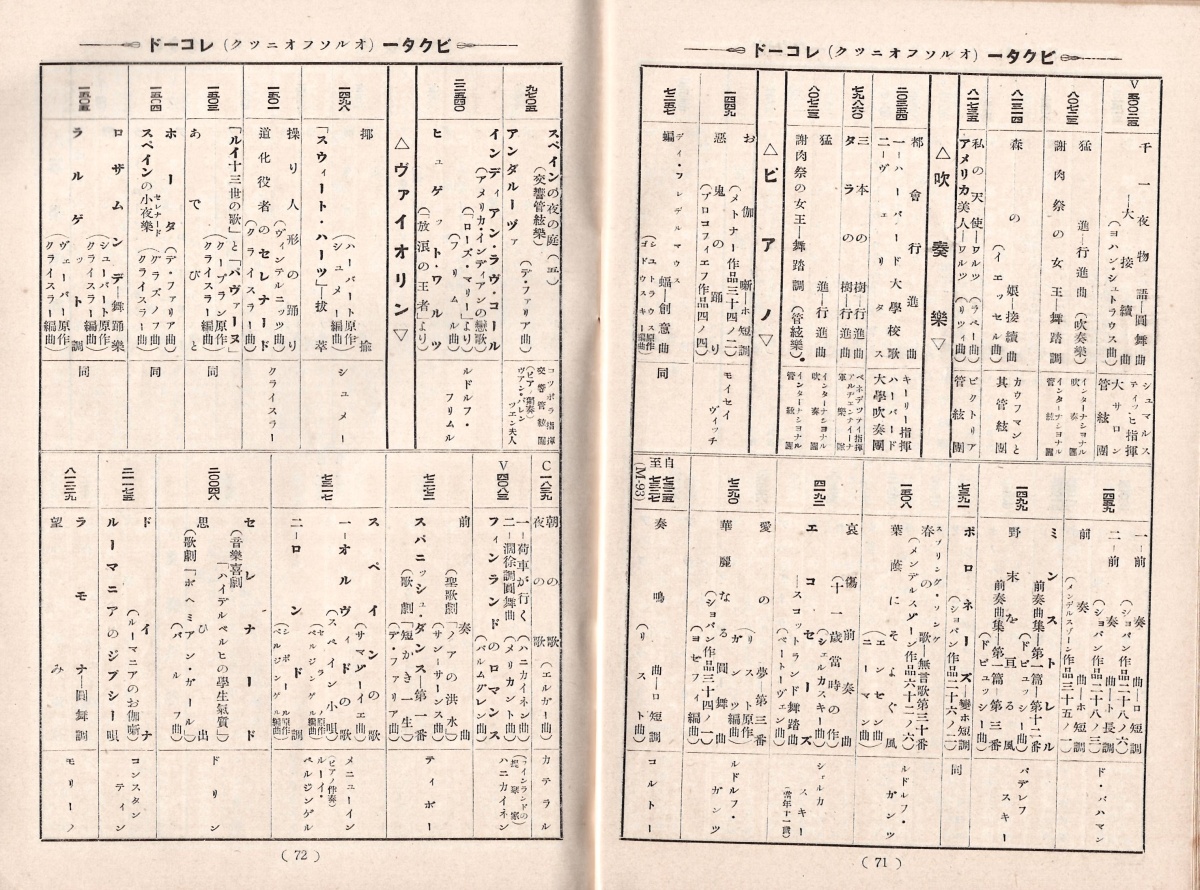 ビクター（オルソフオニツク）レコード
V 五〇〇二三
千一夜物語―圓舞曲
―大接續曲
（ヨハン・シュトラウス曲）
シュマルス
ティッヒ指揮
大サロン
管絃團
八〇七三
猛進―行進曲（吹奏樂）
謝肉祭の女王―舞踏調
インターナショナル
吹奏團
インターナショナル
管絃團
八一三一四
森の娘接續曲
（イエッセル曲）
カウフマンと
其管絃團
八一七三五
私の天使―ワルツ（ラペー曲）
アメリカ美人―ワルツ（リツツィ曲）
ビクトリア
管絃團
△吹奏樂▽
二〇三五四
都會行進曲
一―ハーバード大學校歌
二―ヴェリタス
キーリー指揮
ハーバード
大學吹奏團
七九八六〇
三本の樹―行進曲
タラの樹―行進曲
ベネデツアイ指揮
アルヂェンテイーナ
軍樂隊
八〇七二三
猛進―行進曲
謝肉祭の女王―舞踏調（管絃樂）
インターナショナル
吹奏團
インターナショナル
管絃團
△ピアノ▽
一四四九
お伽噺―ホ短調
（メトナー作品三十四ノ二）
惡鬼の踊り
（プロコフィエフ作品四ノ四）
モイセイ
ヴィッチ
七三五七
ディ・フレデルマウス
蝙蝠―創意曲
（シュトラウス原作
ゴドフスキー編曲）
同
一四五九
一―前奏曲―ロ短調
（ショパン作品二十八ノ六）
二―前奏曲―ト長調
（ショパン作品二十八ノ三）
前奏曲―ホ短調
（メンデルスゾーン作品三十五ノ一）
ド・パハマン
一四九九
ミンストレル
前奏曲集―第一篇―第十二番
（ドビュッシー曲）
野末を亘る風
前奏曲集―第一篇―第三番
（ドビュッシー曲）
パデレフ
スキー
七三九一
ポロネーズ―變ホ短調
（ショパン作品二十六ノ二）
同
一五〇八
スプリング・ソング
春の歌―無言歌第三十番
（メンデルスゾーン作品六十二ノ六）
葉蔭にそよぐ風
（エンセン曲）
（ニーマン曲）
ルドルフ・
ガンツ
四一九二
哀傷前奏曲
（十一歳當時の作）
（シェルカスキー曲）
エコセーズ
―スコットランド舞踏曲
（ベートーヴェン曲）
シェルカ
スキー
（當年十一歳）
七三九〇
愛の夢第三番
（リスト原作
ガンツ編曲）
華麗なる圓舞曲
（ショパン作品三十四ノ一）
（ヨセフィ編曲）
ルドルフ・
ガンツ
自七三三五
至七三三七
(M-93)
奏鳴曲―ロ短調
（リスト曲）
コルトー
( 71 )
ビクター（オルソフオニツク）レコード
九七〇五
スペインの夜の庭（五）
（交響管絃樂）
（デ・ファリア曲）
アンダルーヴァ
コッポラ指揮
交響管絃團
（ピアノ獨奏）
ヴァン・バレン
ツエン夫人
二三五四〇
インディアン・ラヴ・コール
（アメリカ・インディアンの戀歌）
（「ローズ・マリー」より）
（フリムル曲）
ヒュゲット・ワルツ
（「放浪の王者」より）
ルドルフ・
フリムル
△ヴァイオリン▽
一四九八
揶揄
（ハーバート原作
シュメー編曲）
「スウィート・ハーツ」―拔萃
シュメー
一五〇一
操り人形の踊り
（ヴィンテルニッツ曲）
道化役者のセレナード
（クライスラー曲）
クライスラー
一五〇三
「ルイ十三世の歌」と「パヴァーヌ」
（クープラン原作
クライスラー編曲）
あでびと
同
一五〇四
ホータ（デ・ファリア曲）
スペインの小夜樂
セレナード
（グラズノフ曲
クライスラー編曲）
同
一五〇五
ロザムンデ―舞踊樂
（シューバート原作
クライスラー編曲）
ラルゲット調
（ヴェーバー原作
クライスラー編曲）
同
C 一八三九
朝の歌
夜の歌
（エルガー曲）
カテラル
V 四〇八三
一―荷車が行く（ハニカイネン曲）
二―瀾徐調圓舞曲（メリカント曲）
フィンランドのロマンス
（パルムグレン曲）
（フィンランドの
提琴家）
ハニカイネン
七三七二
前奏曲
（聖歌劇「ノアの洪水」）
（サン―サーンス曲）
スパニッシュ・ダンス―第一番
（歌劇「短かき一生」）
（デ・ファリア曲）
ティボー
七三一七
スペインの歌
（サマゾーイエ曲）
一―オルヴィドの歌
（スペイン小唄）
二―ロンド調
メニューイン
（ピアノ伴奏）
ルーイ・
ペルジンゲル
二〇〇四八
セレナード
（音樂喜劇「ハイデルベルヒの學生氣質」）
思ひ出
（歌劇「ボヘミアン・ガール」）
（バルフ曲）
ドリン
二一七三五
ドイナ
（ルーマニアのお伽噺）
ルーマニアのジプシー唄
コンスタン
ティン
八一三三九
ラモナ―圓舞調
望み
モリーノ
( 72 )